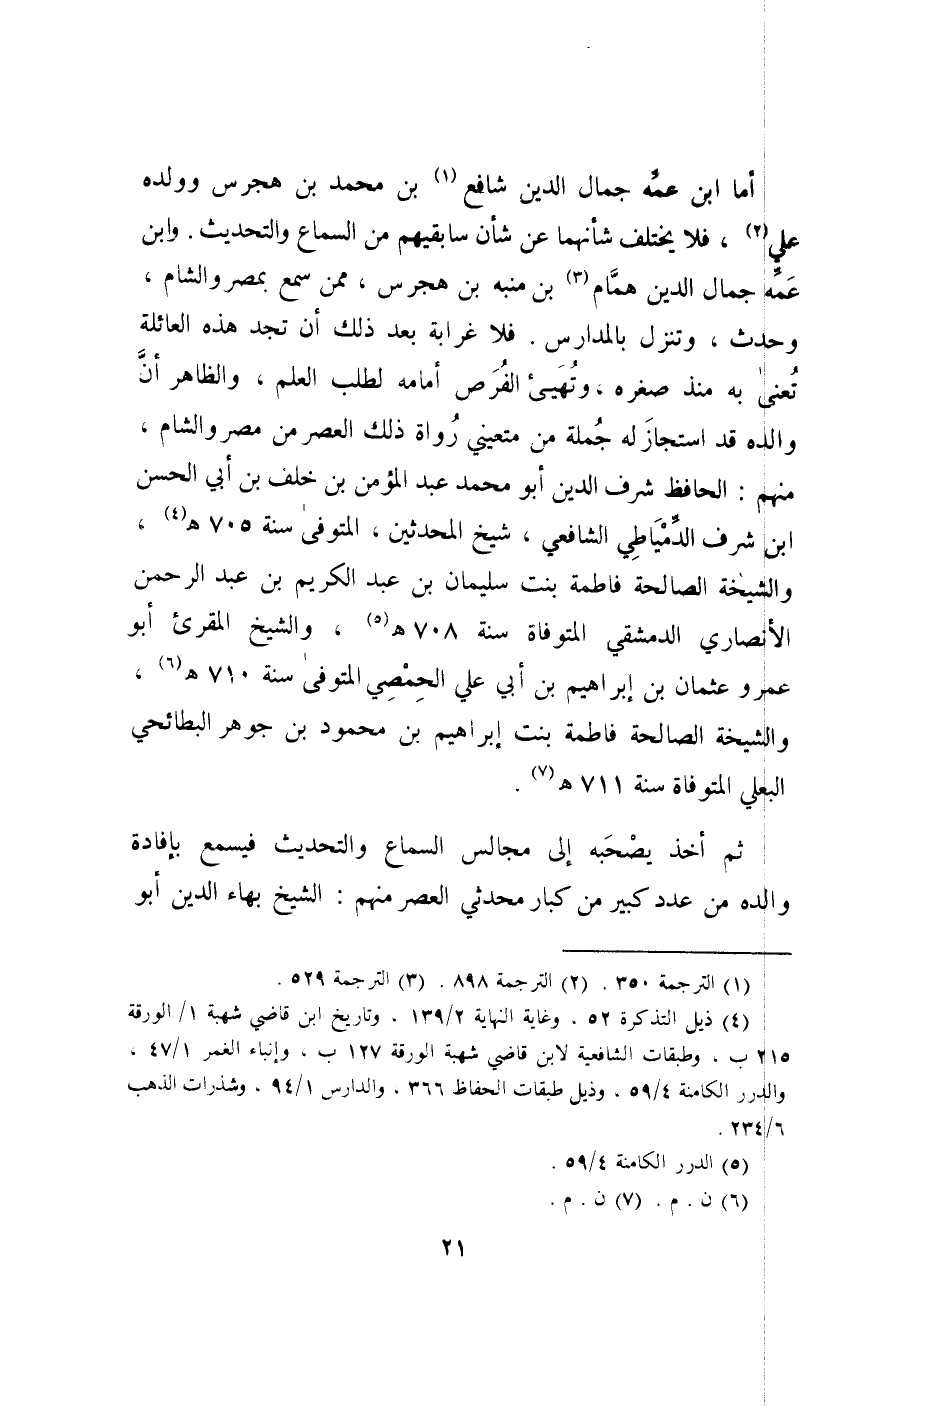 أما ابن عمِّه جمال الدين شافع (١) بن محمد بن هجرس وولده
علي(٢) ، فلا يختلف شأنهما عن شأن سابقيهم من السماع والتحديث . وابن
عَمِّه جمال الدين همَّام(٣) بن منبه بن هجرس ، ممن سمع بمصر والشام ،
وحدث ، وتنزل بالمدارس . فلا غرابة بعد ذلك أن تجد هذه العائلة
تُعنىٰ به منذ صغره ، وتُهَيـئُ الفُرَص أمامه لطلب العلم ، والظاهر أنَّ
والده قد استجازَ له جُملة من متعيني رُواة ذلك العصر من مصر والشام ،
منهم : الحافظ شرف الدين أبو محمد عبد المؤمن بن خلف بن أبي الحسن
ابن شرف الدِّمْيَاطِي الشافعي ، شيخ المحدثين ، المتوفىٰ سنة ٧٠٥ هـ(٤) ،
والشيخة الصالحة فاطمة بنت سليمان بن عبد الكريم بن عبد الرحمن
الأنصاري الدمشقي المتوفاة سنة ٧٠٨ هـ(٥) ، والشيخ المقرئ أبو
عمرو عثمان بن إبراهيم بن أبي علي الحِمْصِي المتوفىٰ سنة ٧١٠ هـ(٦) ،
والشيخة الصالحة فاطمة بنت إبراهيم بن محمود بن جوهر البطائحي
البعلي المتوفاة سنة ٧١١ هـ(٧) .
ثم أخذ يصْحَبه إلى مجالس السماع والتحديث فيسمع بإفادة
والده من عدد كبير من كبار محدثي العصر منهم : الشيخ بهاء الدين أبو
(١) الترجمة ٣٥٠ . (٢) الترجمة ٨٩٨ . (٣) الترجمة ٥٢٩ .
(٤) ذيل التذكرة ٥٢ . وغاية النهاية ١٣٩/٢ . وتاريخ ابن قاضي شهبة ١/ الورقة
٢١٥ ب ، وطبقات الشافعية لابن قاضي شهبة الورقة ١٢٧ ب ، وإنباء الغمر ٤٧/١ ،
والدرر الكامنة ٥٩/٤ ، وذيل طبقات الحفاظ ٣٦٦ ، والدارس ٩٤/١ ، وشذرات الذهب
٢٣٤/٦ .
(٥) الدرر الكامنة ٥٩/٤ .
(٦) ن . م . (٧) ن . م .
٢١